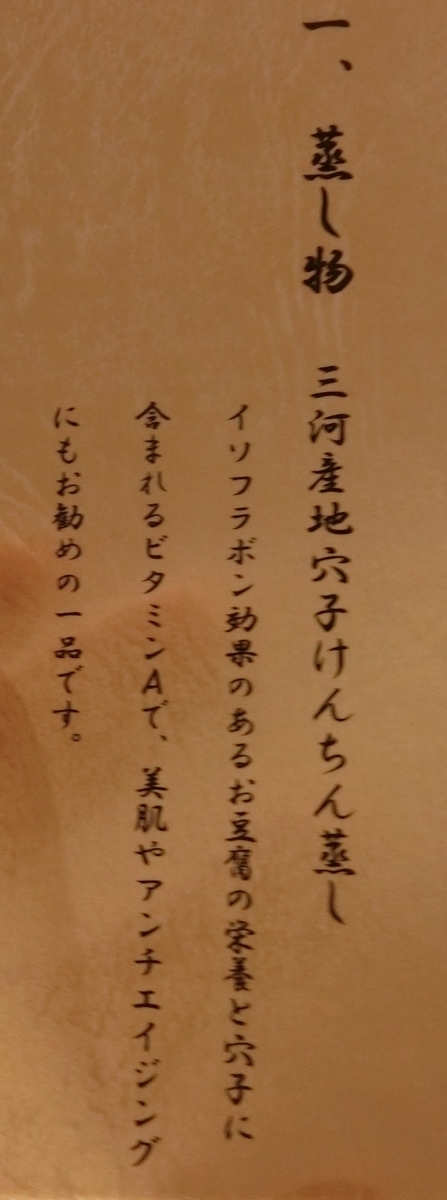 一、 蒸し物 三河産地穴子けんちん蒸し
イソフラボン効果のあるお豆腐の栄養と穴子に
含まれるビタミンAで、美肌やアンチエイジング
にもお勧めの一品です。